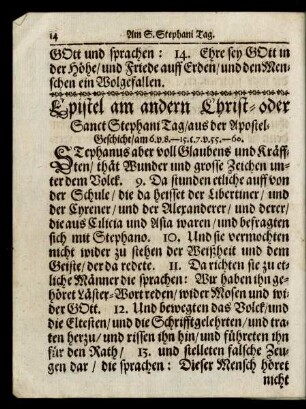 14 Am S. Stephani Tag.
GOtt und sprachen: 14. Ehre sey GOtt in
der Höhe/ und Friede auff Erden/ und den Men-
schen ein Wolgefallen.
Epistel am andern Christ- oder
Sanct Stephani Tag/ aus der Apostel-
Geschicht/ am 6. v. 8.—15. c. 7. v. 55.—60.
STephanus aber voll Glaubens und Kräff-
ten/ thät Wunder und grosse Zeichen un-
ter dem Volck. 9. Da stunden etliche auff von
der Schule/ die da heisset der Libertiner/ und
der Cyrener/ und der Alexanderer/ und derer/
die aus Cilicia und Asia waren/ und befragten
sich mit Stephano. 10. Und sie vermochten
nicht wider zu stehen der Weißheit und dem
Geiste/ der da redete. 11. Da richten sie zu et-
liche Männer die sprachen: Wir haben ihn ge-
höret Läster-Wort reden/ wider Mosen und wi-
der GOtt. 12. Und bewegten das Volck/ und
die Eltesten/ und die Schrifftgelehrten/ und tra-
ten herzu/ und rissen ihn hin/ und führeten ihn
für den Rath/ 13. und stelleten falsche Zeu-
gen dar/ die sprachen: Dieser Mensch höret
nicht